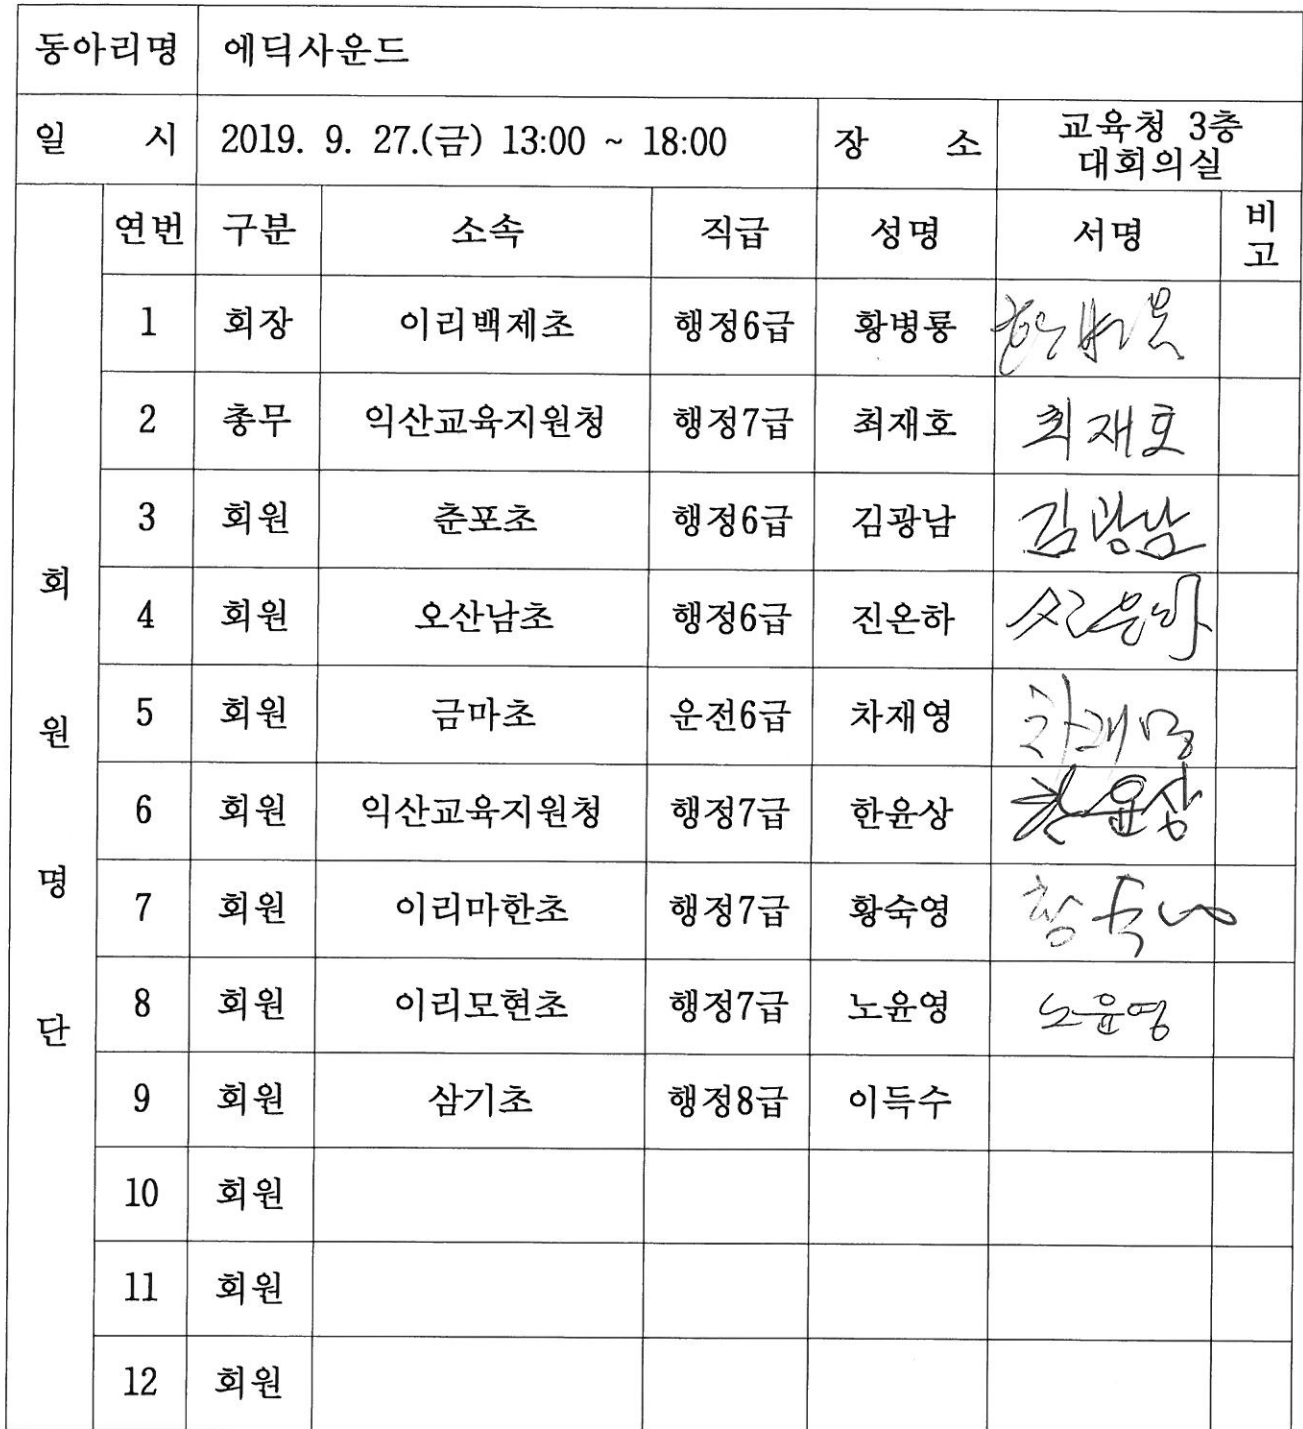 동아리명 에딕사운드
일 시 2019. 9. 27.(금) 13:00 ~ 18:00 장 소 교육청 3층
대회의실
회원명단
연번 구분 소속 직급 성명 서명 비고
1 회장 이리백제초 행정6급 황병룡
2 총무 익산교육지원청 행정7급 최재호 최재호
3 회원 춘포초 행정6급 김광남 김광남
4 회원 오산남초 행정6급 진온하
5 회원 금마초 운전6급 차재영 차재영
6 회원 익산교육지원청 행정7급 한윤상 한윤상
7 회원 이리마한초 행정7급 황숙영
8 회원 이리모현초 행정7급 노윤영 노윤영
9 회원 삼기초 행정8급 이득수
10 회원
11 회원
12 회원